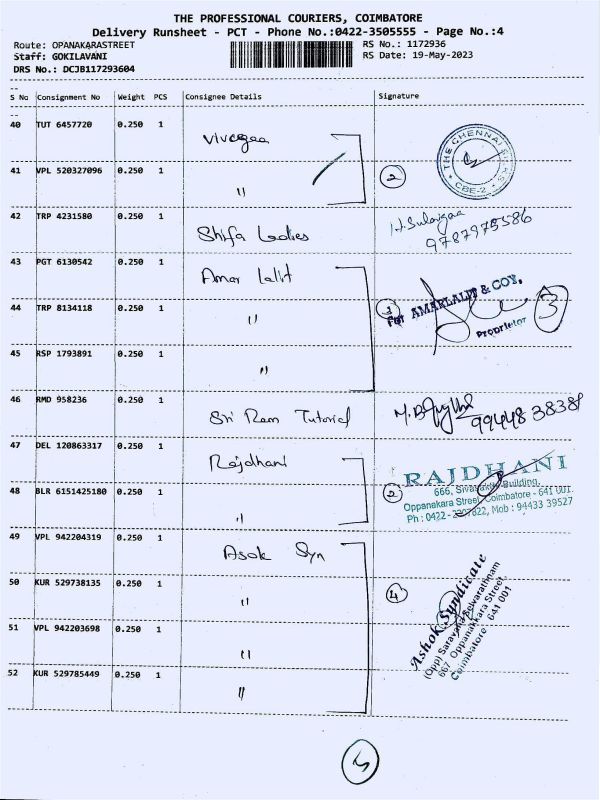 THE PROFESSIONAL COURIERS, COIMBATORE
Delivery Runsheet - PCT - Phone No.:0422-3505555 - Page No.:4
Route: OPANAKARASTREET RS No.: 1172936
Staff: GOKILAVANI RS Date: 19-May-2023
DRS No.: DCJB117293604
S No Consignment No Weight PCS Consignee Details Signature
40 TUT 6457720 0.250 1 Vivegaa
THE CHENNAI SILKS CBE-2
41 VPL 520327096 0.250 1 " 2
42 TRP 4231580 0.250 1 Shifa Ladies
9787975586
43 PGT 6130542 0.250 1 Amar Lalit
44 TRP 8134118 0.250 1 "
For AMARLALIT & COY. 3
Proprietor
45 RSP 1793891 0.250 1 "
46 RMD 958236 0.250 1 Sri Ram Tutorial
47 DEL 120863317 0.250 1 Rajdhani
RAJDHANI
48 BLR 6151425180 0.250 1 " 2
666, Building,
Oppanakara Street, Coimbatore - 641 001.
Ph : 0422 - Mob : 94433 39527
49 VPL 942204319 0.250 1 Asok Syn
50 KUR 529738135 0.250 1 " 4
Ashok Syndicate
(Opp)
667, Oppanakkara Street,
Coimbatore - 641 001
51 VPL 942203698 0.250 1 "
52 KUR 529785449 0.250 1 "